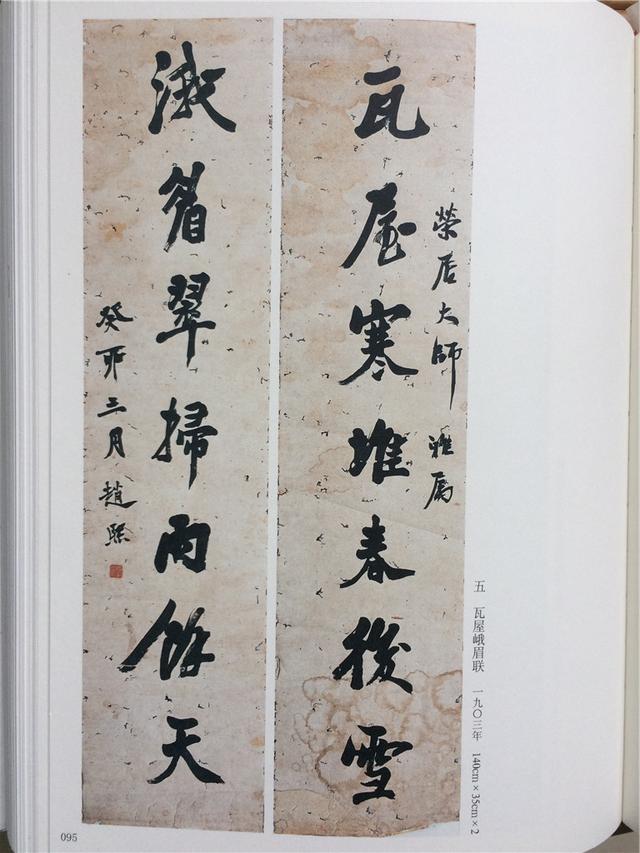 瓦屋寒堆春後雪
榮居大師 雅属
渽眉翠掃雨餘天
癸卯三月趙熙
五 瓦屋峨眉联 一九〇三年 140cm×35cm×2
095